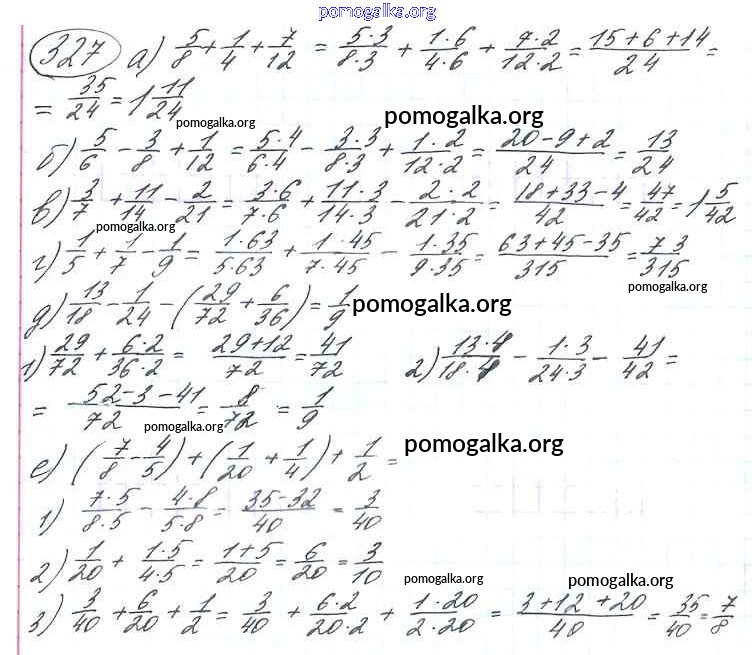 pomogalka.org
327 а) 5/8 + 1/4 + 7/12 = 5·3/8·3 + 1·6/4·6 + 7·2/12·2 = 15+6+14/24 =
= 35/24 = 1 11/24
pomogalka.org
pomogalka.org
б) 5/6 - 3/8 + 1/12 = 5·4/6·4 - 3·3/8·3 + 1·2/12·2 = 20-9+2/24 = 13/24
в) 3/7 + 11/14 - 2/21 = 3·6/7·6 + 11·3/14·3 - 2·2/21·2 = 18+33-4/42 = 47/42 = 1 5/42
pomogalka.org
г) 1/5 + 1/7 - 1/9 = 1·63/5·63 + 1·45/7·45 - 1·35/9·35 = 63+45-35/315 = 73/315
pomogalka.org
д) 13/18 - 1/24 - (29/72 + 6/36) = 1/9
pomogalka.org
1) 29/72 + 6·2/36·2 = 29+12/72 = 41/72 2) 13·4/18·4 - 1·3/24·3 - 41/42 =
= 52-3-41/72 = 8/72 = 1/9
pomogalka.org
е) (7/8 - 4/5) + (1/20 + 1/4) + 1/2 =
pomogalka.org
1) 7·5/8·5 - 4·8/5·8 = 35-32/40 = 3/40
2) 1/20 + 1·5/4·5 = 1+5/20 = 6/20 = 3/10
pomogalka.org
pomogalka.org
3) 3/40 + 6/20 + 1/2 = 3/40 + 6·2/20·2 + 1·20/2·20 = 3+12+20/40 = 35/40 = 7/8